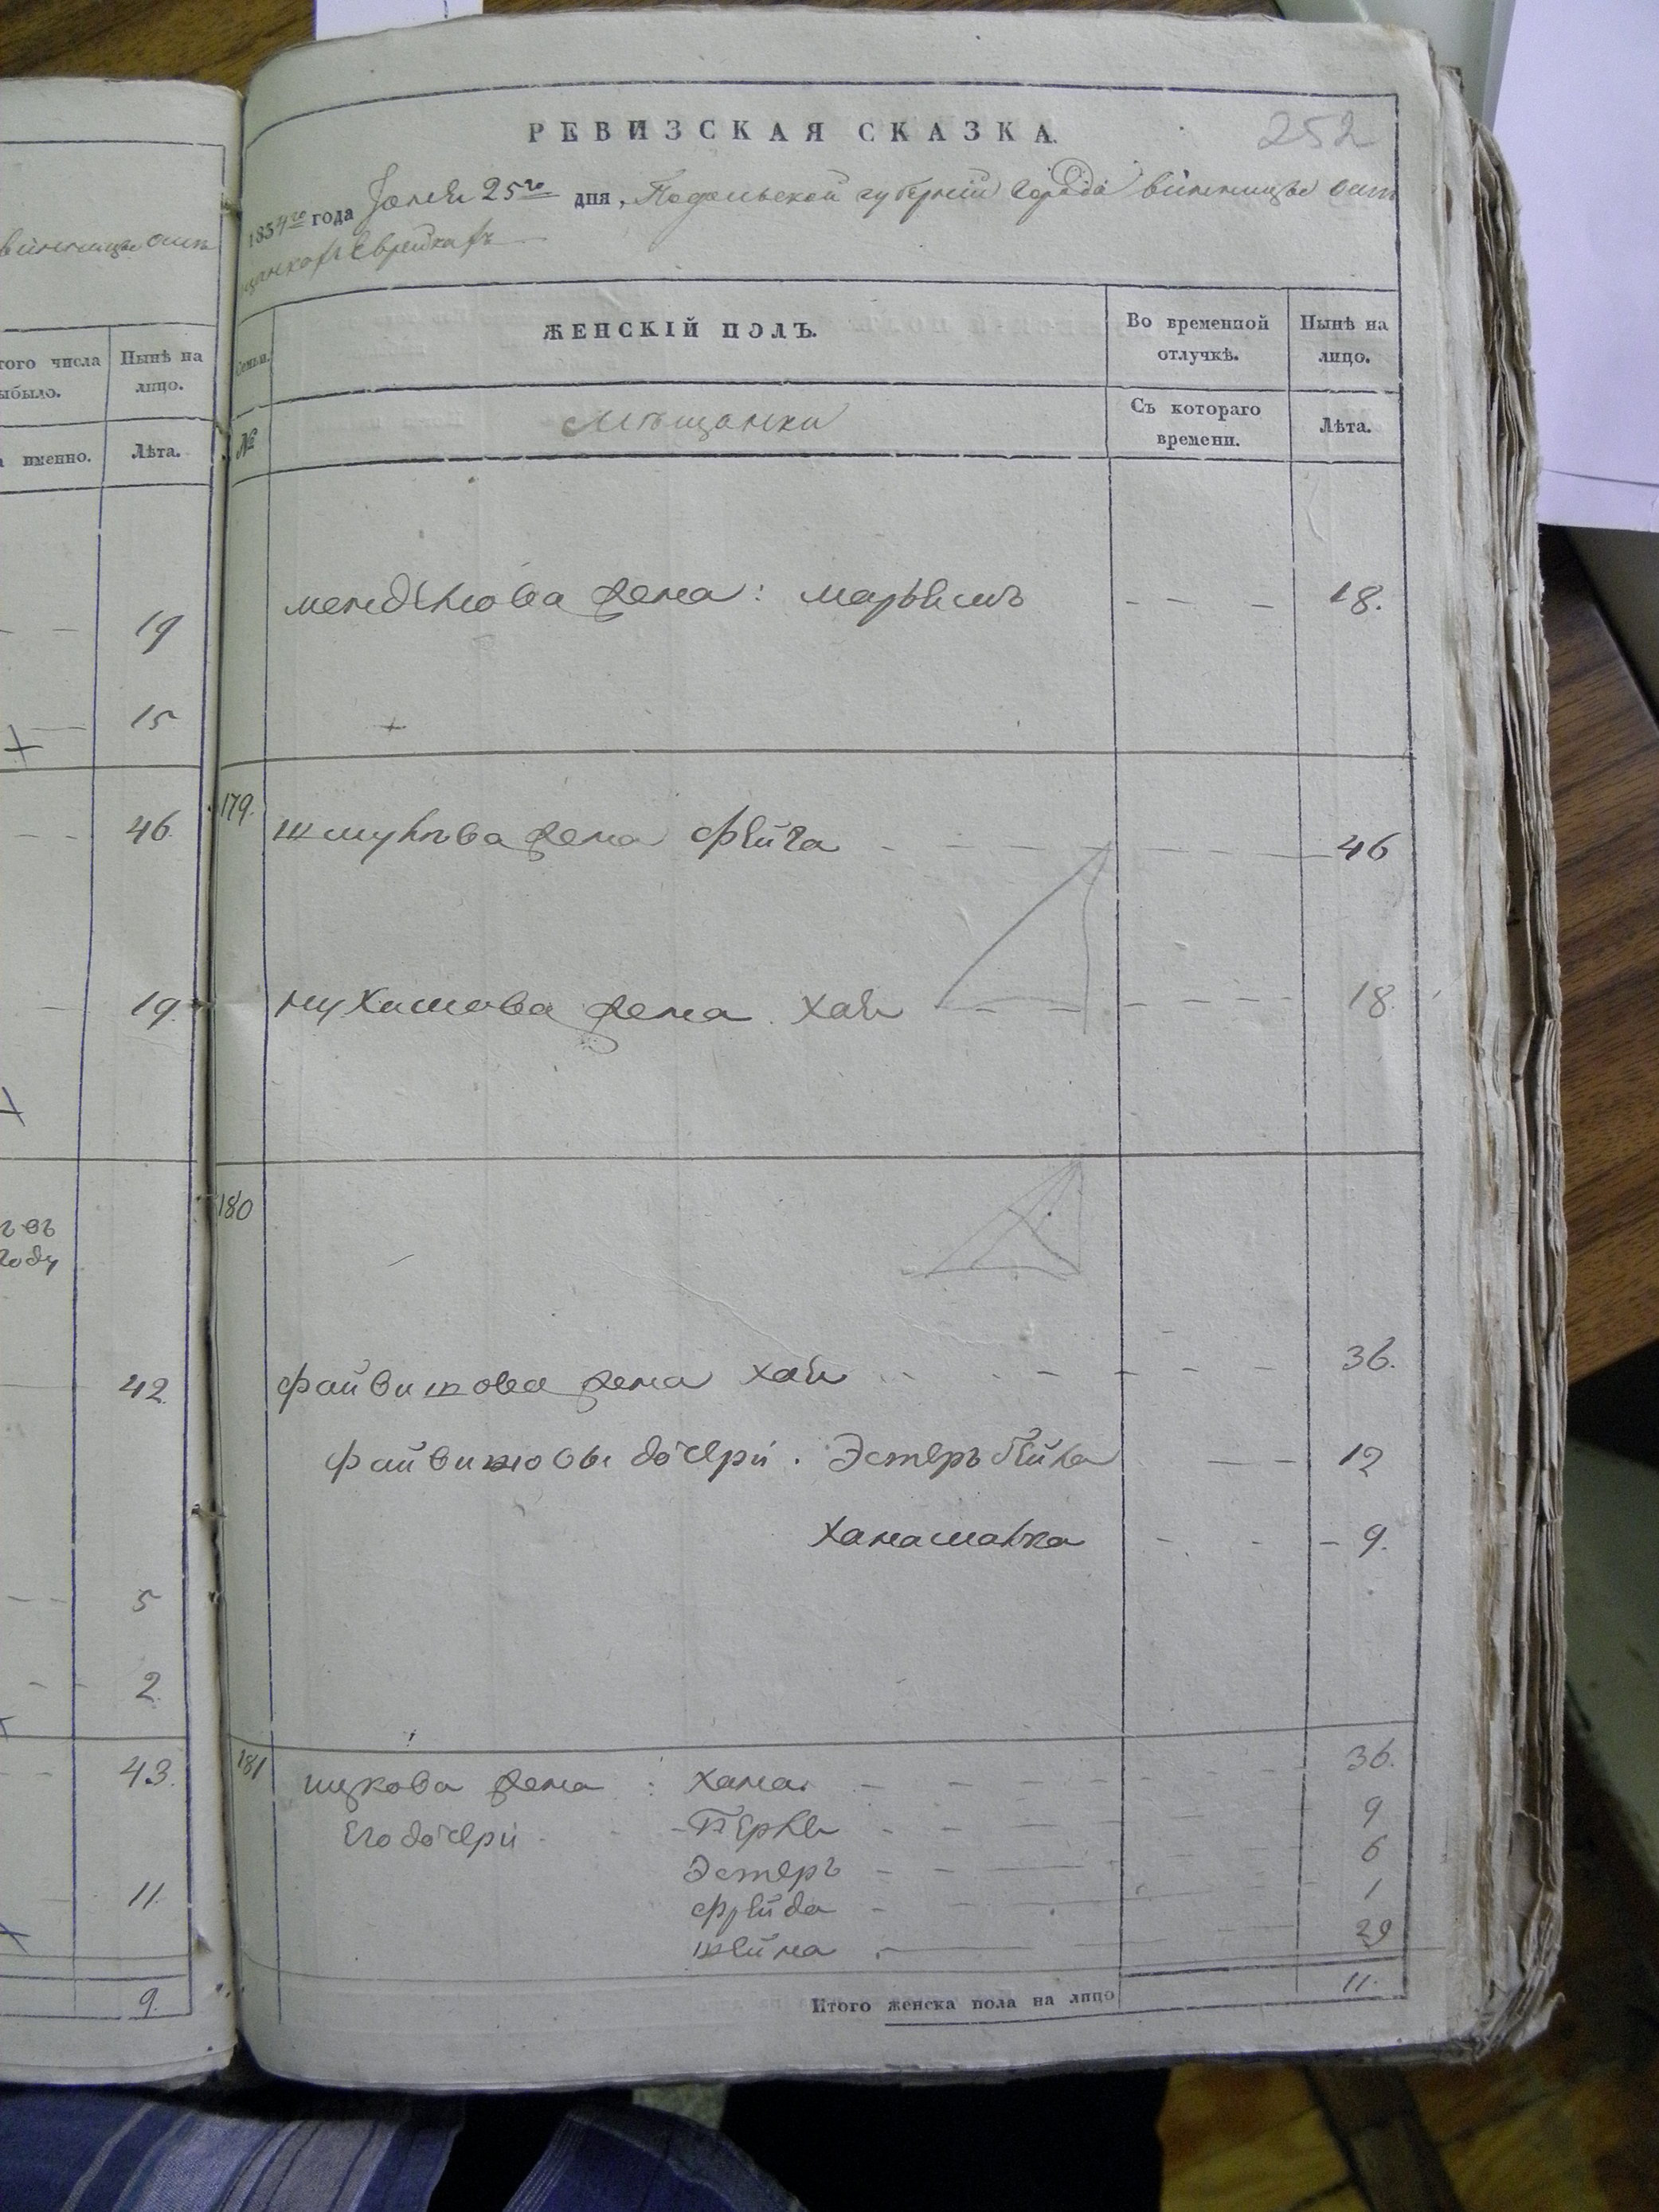 винницы
того числа
Нынѣ на
лицо.
ыбыло.
именно.
Лѣта.
19
15
46.
19.
42.
5
2
43.
11.
9.
252
РЕВИЗСКАЯ СКАЗКА.
1834го года Іюня 25го дня, Подольской губерніи города винницы
Еврейкахъ
Семьи.
ЖЕНСКІЙ ПОЛЪ.
Во временной
отлучкѣ.
Нынѣ на
лицо.
№
Мѣщанки
Съ котораго
времени.
Лѣта.
менделева жена: марьемъ - - - 18.
179. шмулева жена фейга - - - 46
нухимова жена хая - - - 18
180
файвишова жена хая - - - 36.
файвишовы дочери. Эстеръ бейла - - 12
ханамалка - - - 9.
181 ицкова жена: хана - - - 36.
Его дочери - Перля - - - 9
Эстеръ - - - 6
фрейда - - - 1
шейна - - 29
Итого женска пола на лицо 11.